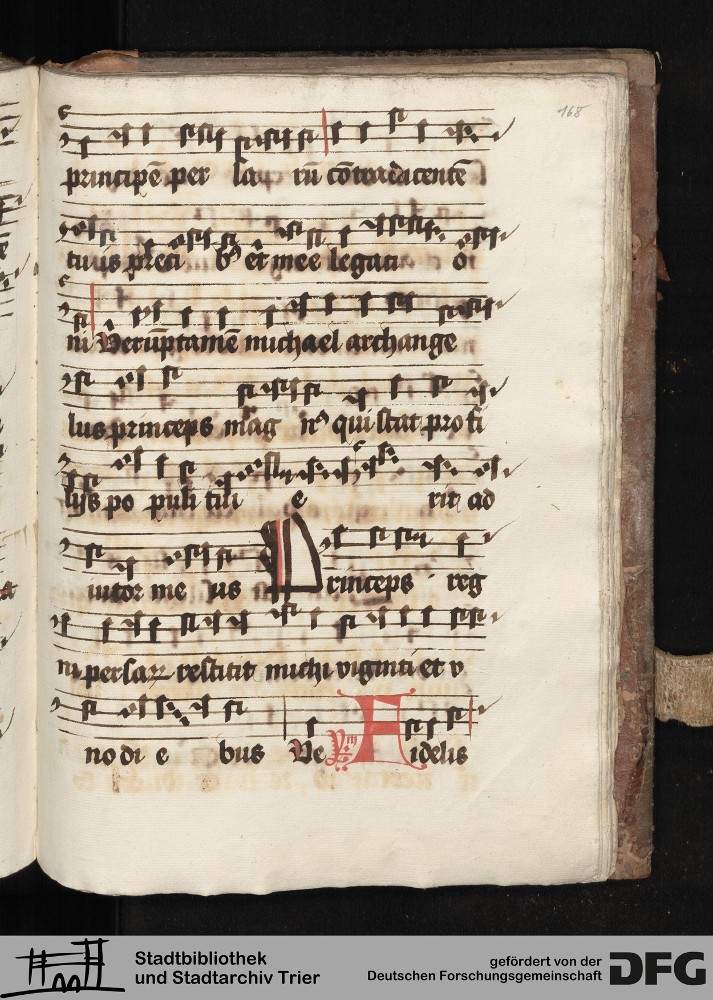 168
principē per sa rū cōtradicentē
tuis preci bꝰ et mee legati o
ni Verūptamē michael archange
lus princeps mag nꝰ qui stat pro fi
lijs po puli tui e rit ad
iutor me us Princeps reg
ni persaꝝ restitit michi viginti et v
no di e bus Ve Fidelis
Stadtbibliothek
und Stadtarchiv Trier
gefördert von der
Deutschen Forschungsgemeinschaft
DFG